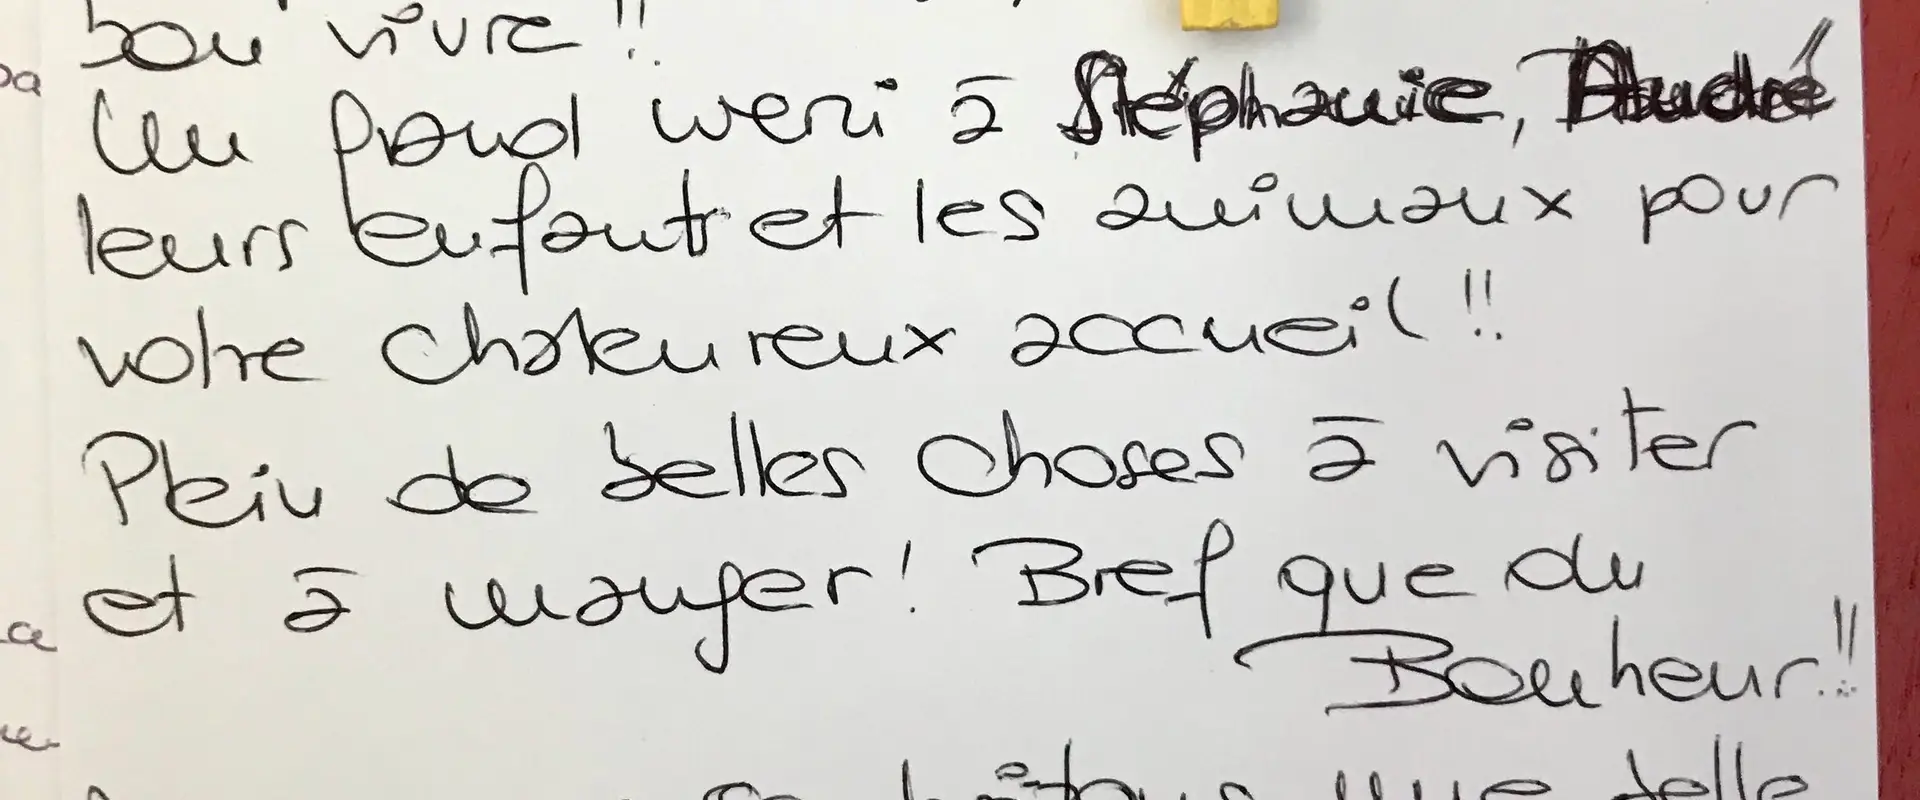 bon vivre !!
Un grand merci à Stéphanie, André
leurs enfants et les animaux pour
votre chaleureux accueil !!
Plein de belles choses à visiter
et à manger ! Bref que du
Bonheur !!
une belle